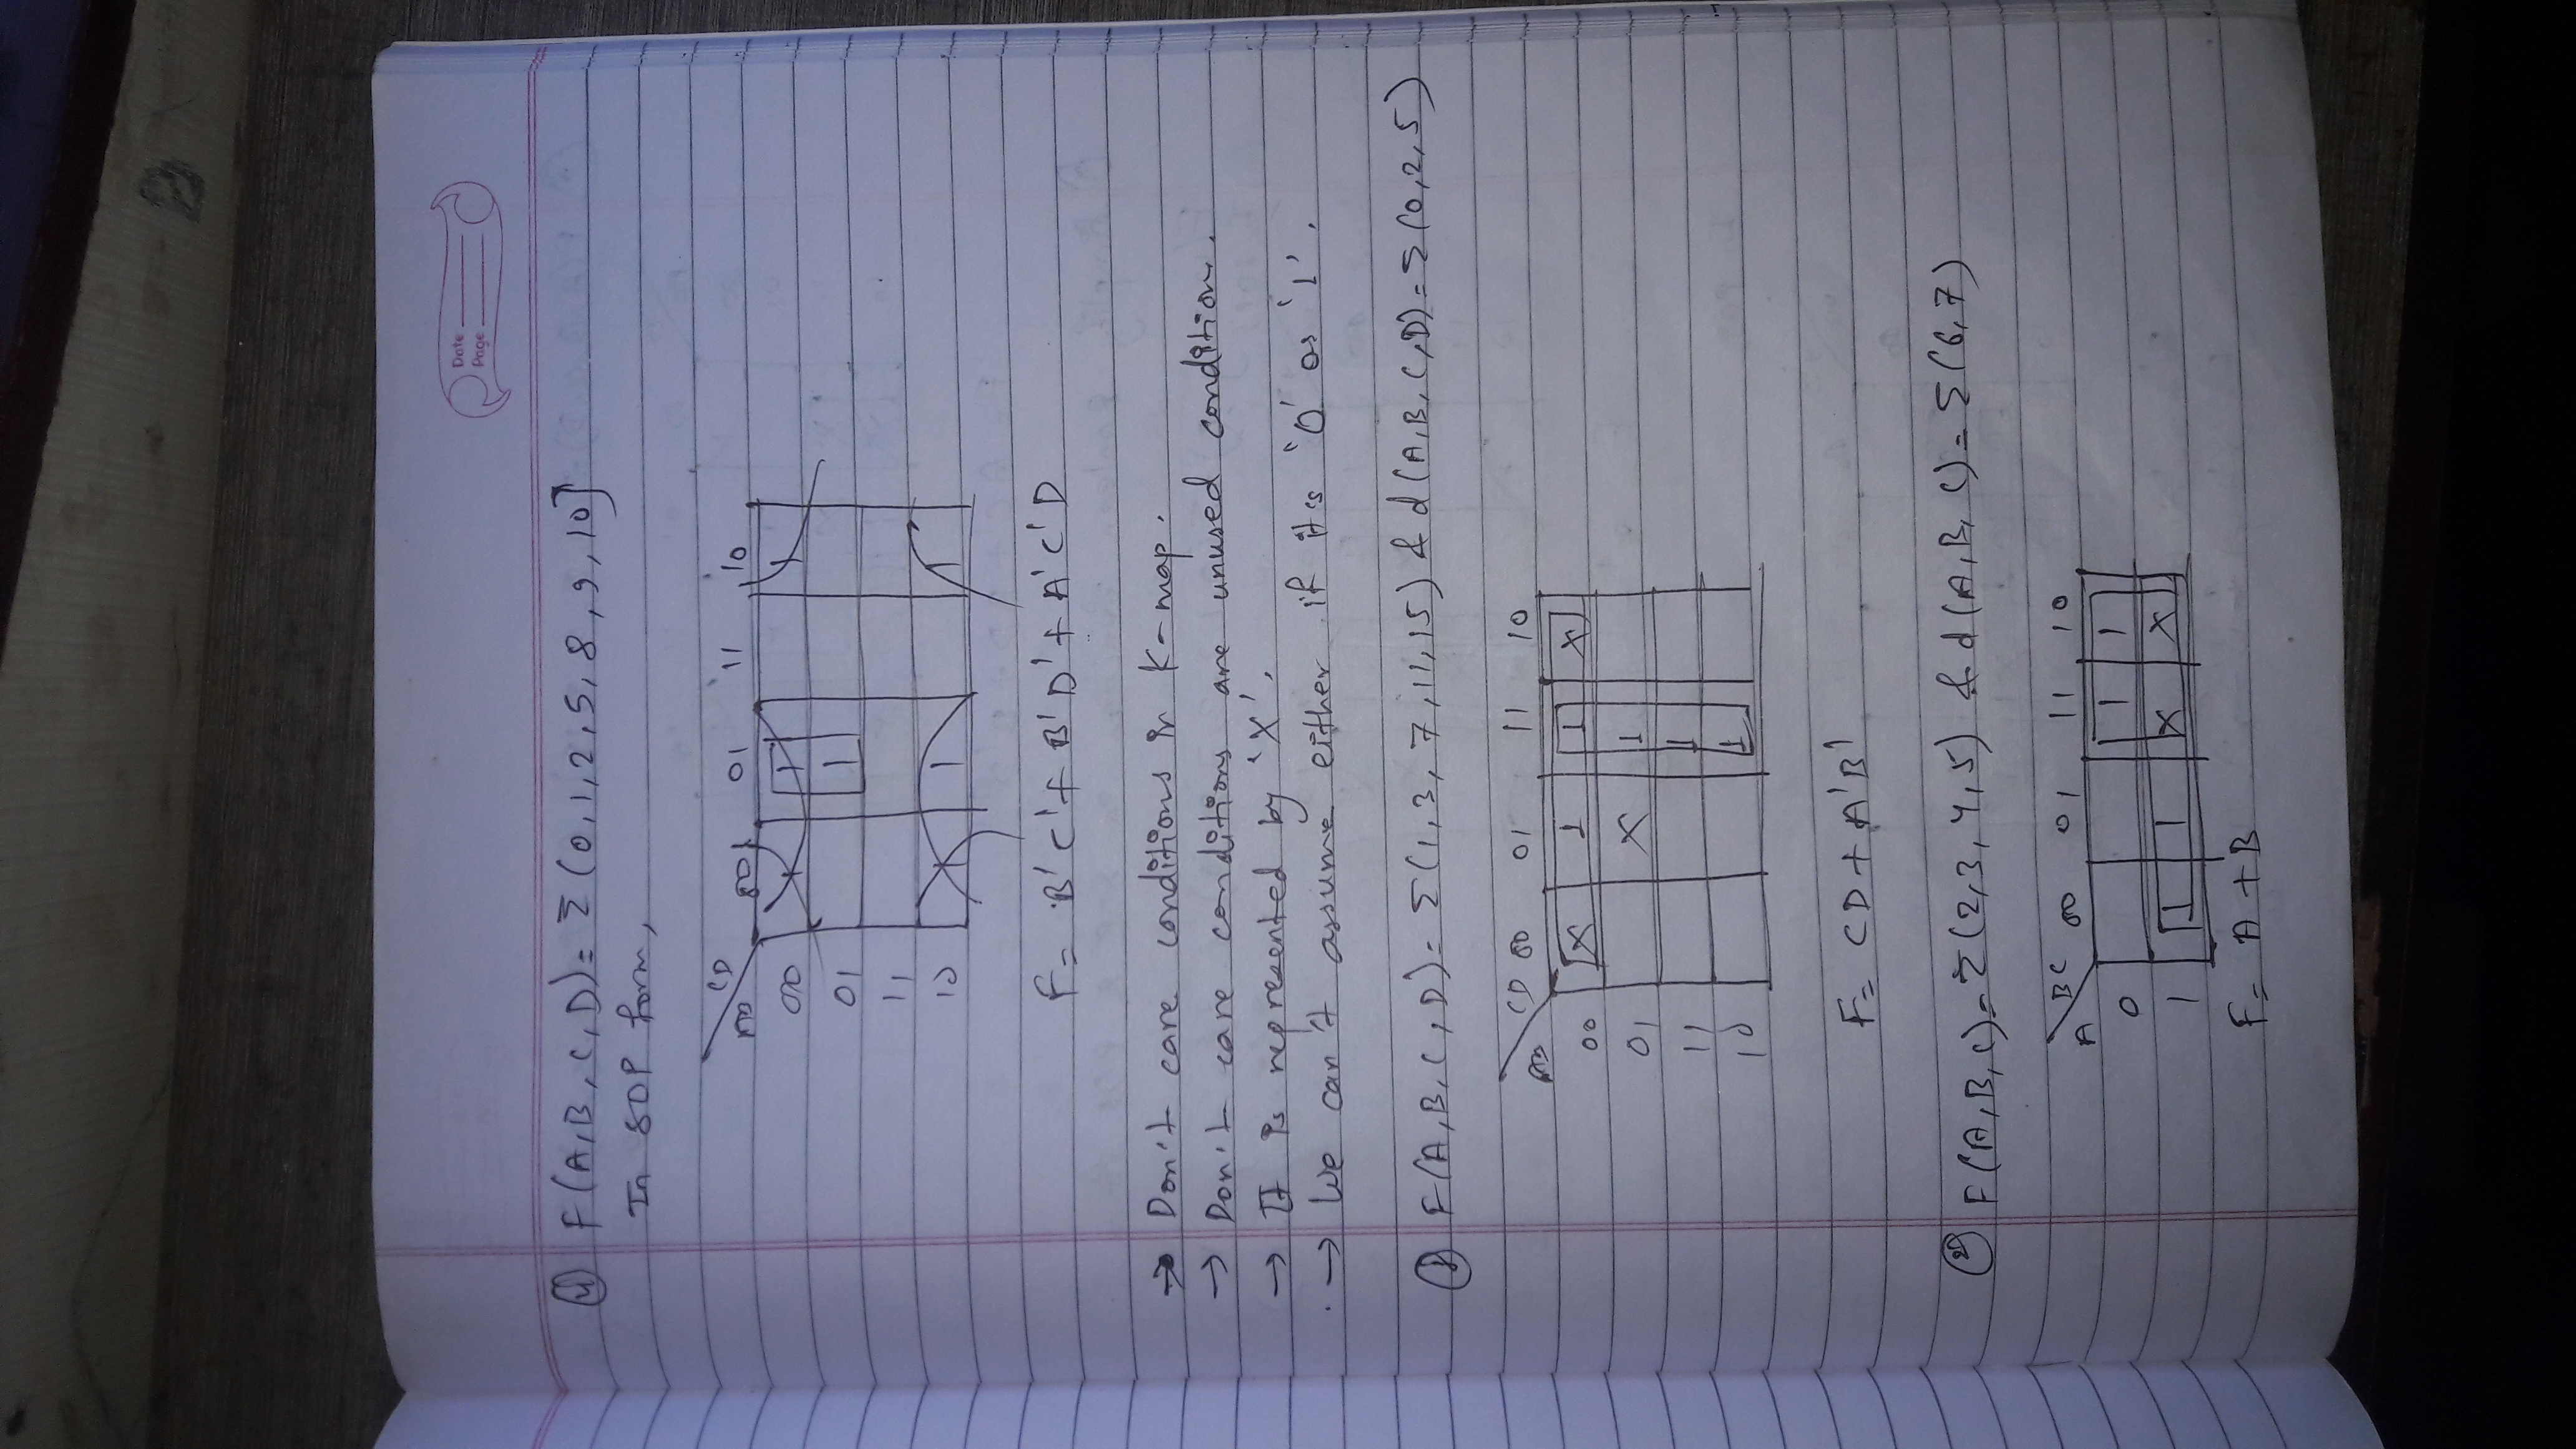 Date
Page
4) F(A,B,C,D)= Σ(0,1,2,5,8,9,10]
In SOP form,
CD
AB 00 01 11 10
00 1 1 1
01 1
11
10 1 1 1
F= B'C'+ B'D'+ A'C'D
→ Don't care conditions in K-map.
→ Don't care conditions are unused condition.
→ It is represented by 'X'.
→ We can't assume either if it's '0' or '1'.
1) F(A,B,C,D)= Σ(1,3,7,11,15) & d(A,B,C,D)= Σ(0,2,5)
CD 00 01 11 10
AB
00 X 1 1 X
01 X 1
11 1
10 1
F= CD+A'B'
2) F(A,B,C)= Σ(2,3,4,5) & d(A,B,C)= Σ(6,7)
BC 00 01 11 10
A
0 1 1
1 1 1 X X
F= A+B